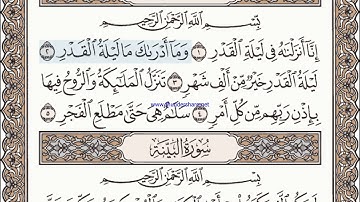 بِسْمِ ٱللَّهِ ٱلرَّحْمَٰنِ ٱلرَّحِيمِ
إِنَّآ أَنزَلْنَٰهُ فِى لَيْلَةِ ٱلْقَدْرِ ١ وَمَآ أَدْرَىٰكَ مَا لَيْلَةُ ٱلْقَدْرِ ٢
لَيْلَةُ ٱلْقَدْرِ خَيْرٌ مِّنْ أَلْفِ شَهْرٍ ٣ تَنَزَّلُ ٱلْمَلَٰٓئِكَةُ وَٱلرُّوحُ فِيهَا
بِإِذْنِ رَبِّهِم مِّن كُلِّ أَمْرٍ ٤ سَلَٰمٌ هِىَ حَتَّىٰ مَطْلَعِ ٱلْفَجْرِ ٥
سُورَةُ البَيِّنَةِ
بِسْمِ ٱللَّهِ ٱلرَّحْمَٰنِ ٱلرَّحِيمِ